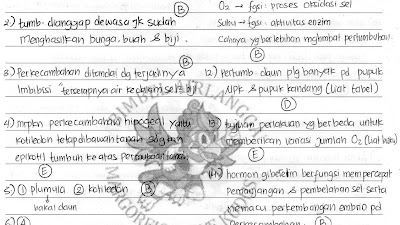 (B)
2) tumb. dianggap dewasa jk sudah
menghasilkan bunga, buah & biji.
(B)
3) Perkecambahan ditandai dg terjadinya
Imbibisi terserapnya air ke dalam sel biji
(B)
4) mrpkn perkecambahan hipogeal yaitu
kotiledon tetap dibawah tanah sdgkan
epikotil tumbuh ke atas permukaan tanah
(E)
5) ① plumula ② kotiledon (B)
bakal daun
(A)
O₂ → fgsi : proses oksidasi sel
Suhu → fgsi : aktivitas enzim
Cahaya yg berlebihan mghmbat pertumbuhan
(B)
12) Pertumb. daun plg banyak pd pupuk
UPK & pupuk kandang (liat tabel)
(D)
13) tujuan perlakuan yg berbeda untuk
memberikan variasi jumlah O₂
(E)
14) hormon giberelin berfungsi mempercepat
Perpanjangan & pembelahan sel serta
memacu perkembangan embrio pd
Perkecambahan. (B)